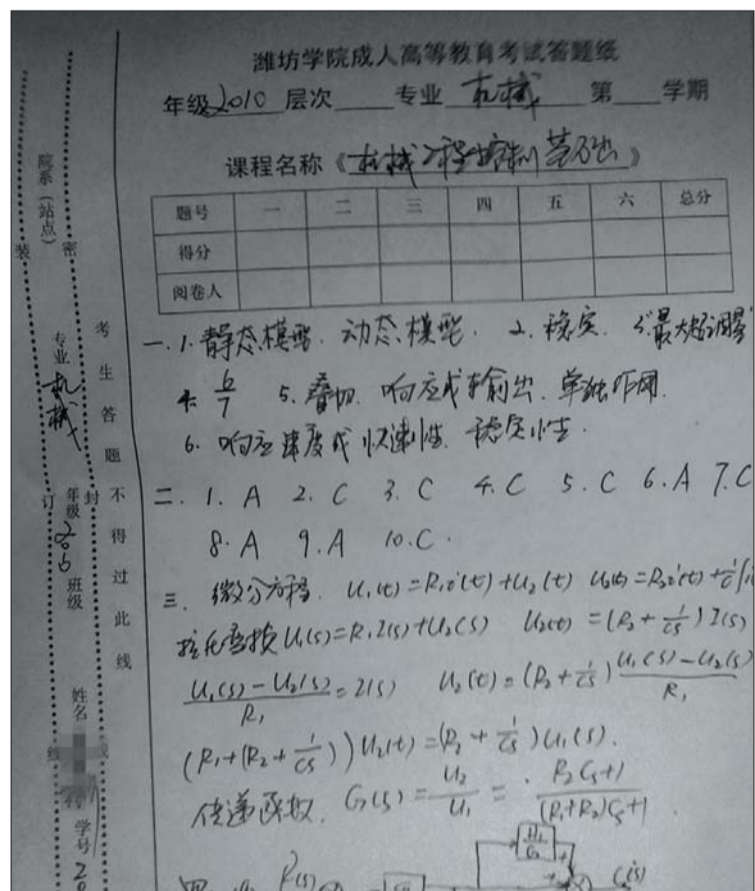 潍坊学院成人高等教育考试答题纸
年级2010 层次 专业 机械 第 学期
课程名称《机械工程控制基础》
题号 一 二 三 四 五 六 总分
得分
阅卷人
一. 1. 静态模型. 动态模型. 2. 稳定. 3. 最大超调量
4. 6/7 5. 叠加. 响应或输出. 单独作用.
6. 响应速度或快速性. 稳定性.
二. 1. A 2. C 3. C 4. C 5. C 6. A 7. C
8. A 9. A 10. C.
三. 微分方程. U₁(t)=R₁i(t)+U₂(t) U₂(t)=R₂i(t)+1/C∫i
拉氏变换 U₁(s)=R₁I(s)+U₂(s) U₂(t)=(R₂+1/CS)I(s)
(U₁(s)-U₂(s))/R₁=I(s) U₂(t)=(R₂+1/CS)(U₁(s)-U₂(s))/R₁
(R₁+(R₂+1/CS))U₂(t)=(R₂+1/CS)U₁(s).
传递函数. G(s)=U₂/U₁=(R₂CS+1)/((R₁+R₂)CS+1)
四. R(s) H₁/G₂ C(s)
院系（站点）
专业 机械
年级 班级
姓名
学号 20
考生答题不得过此线
装 订 线
密 封 线